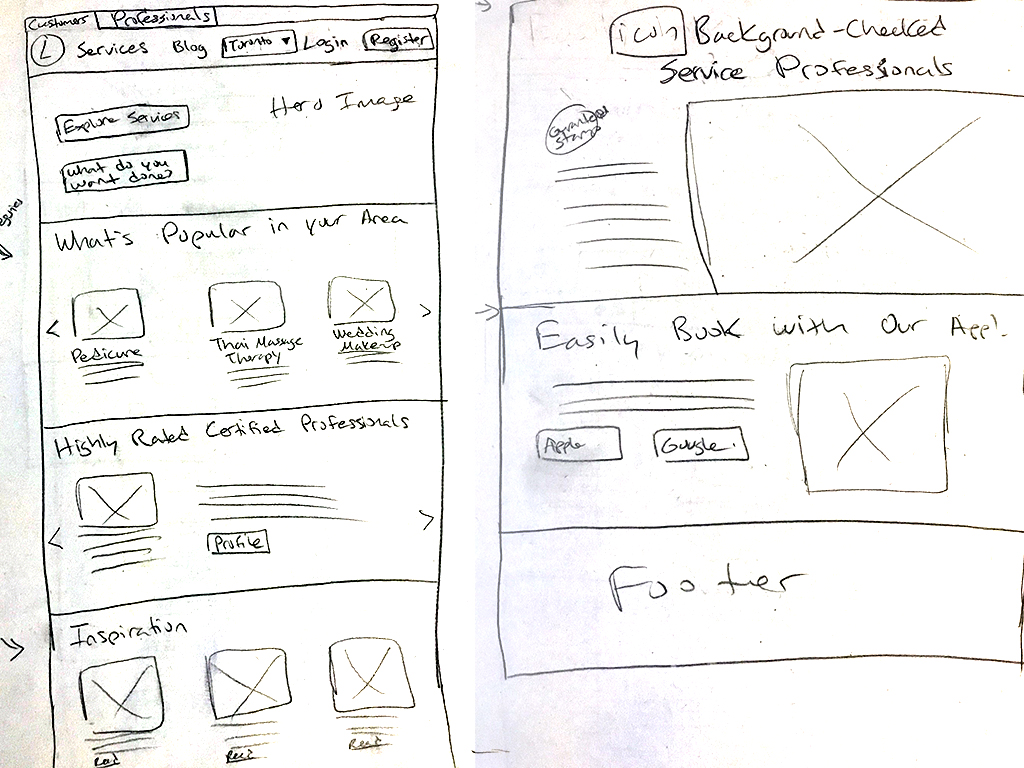 Customers Professionals
L Services Blog Toronto ▼ Login Register
Hero Image
Explore Services
What do you
want done?
What's Popular in your Area
< >
Pedicure
Thai Massage
Therapy
Wedding
Makeup
Highly Rated Certified Professionals
< >
Profile
Inspiration
Read Read Read
icon Background-Checked
Service Professionals
Stamp
Easily Book with Our App!
Apple Google
Footer